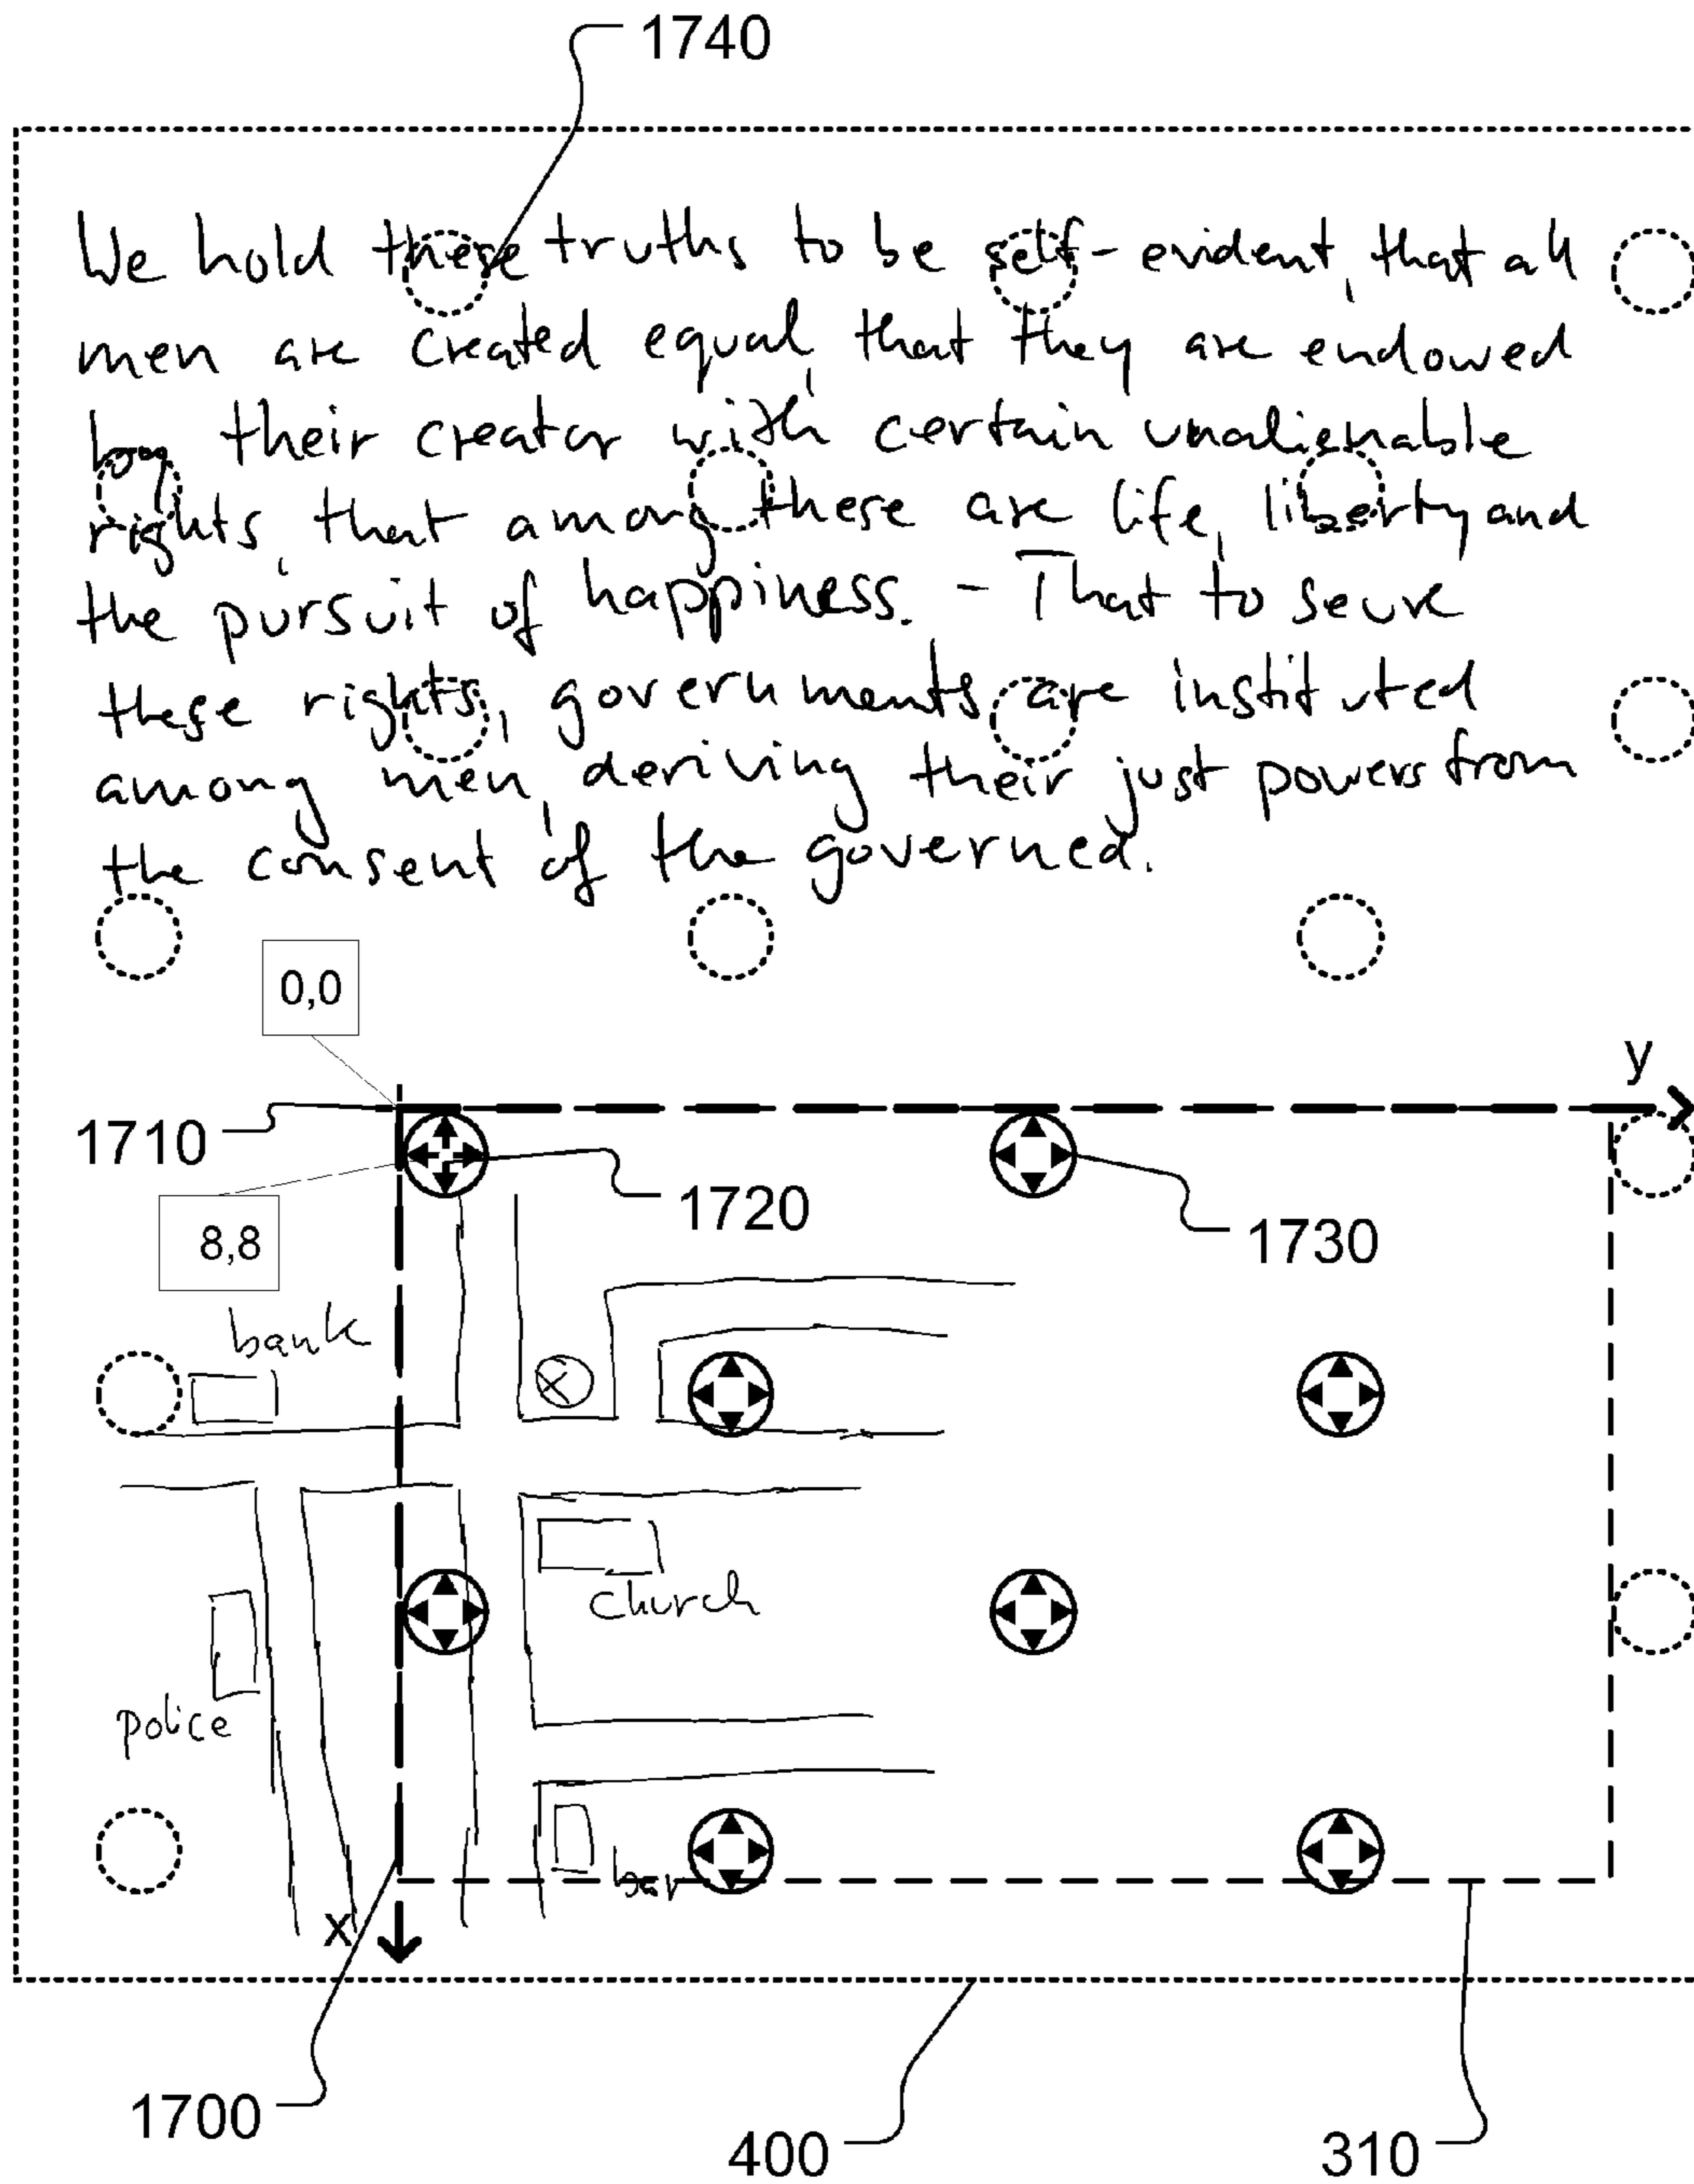 1740
We hold these truths to be self-evident, that all
men are created equal, that they are endowed
by their creator with certain unalienable
rights, that among these are life, liberty and
the pursuit of happiness. - That to secure
these rights, governments are instituted
among men, deriving their just powers from
the consent of the governed.
0,0
y
1710
1720
8,8
1730
bank
church
police
bar
x
1700
400
310